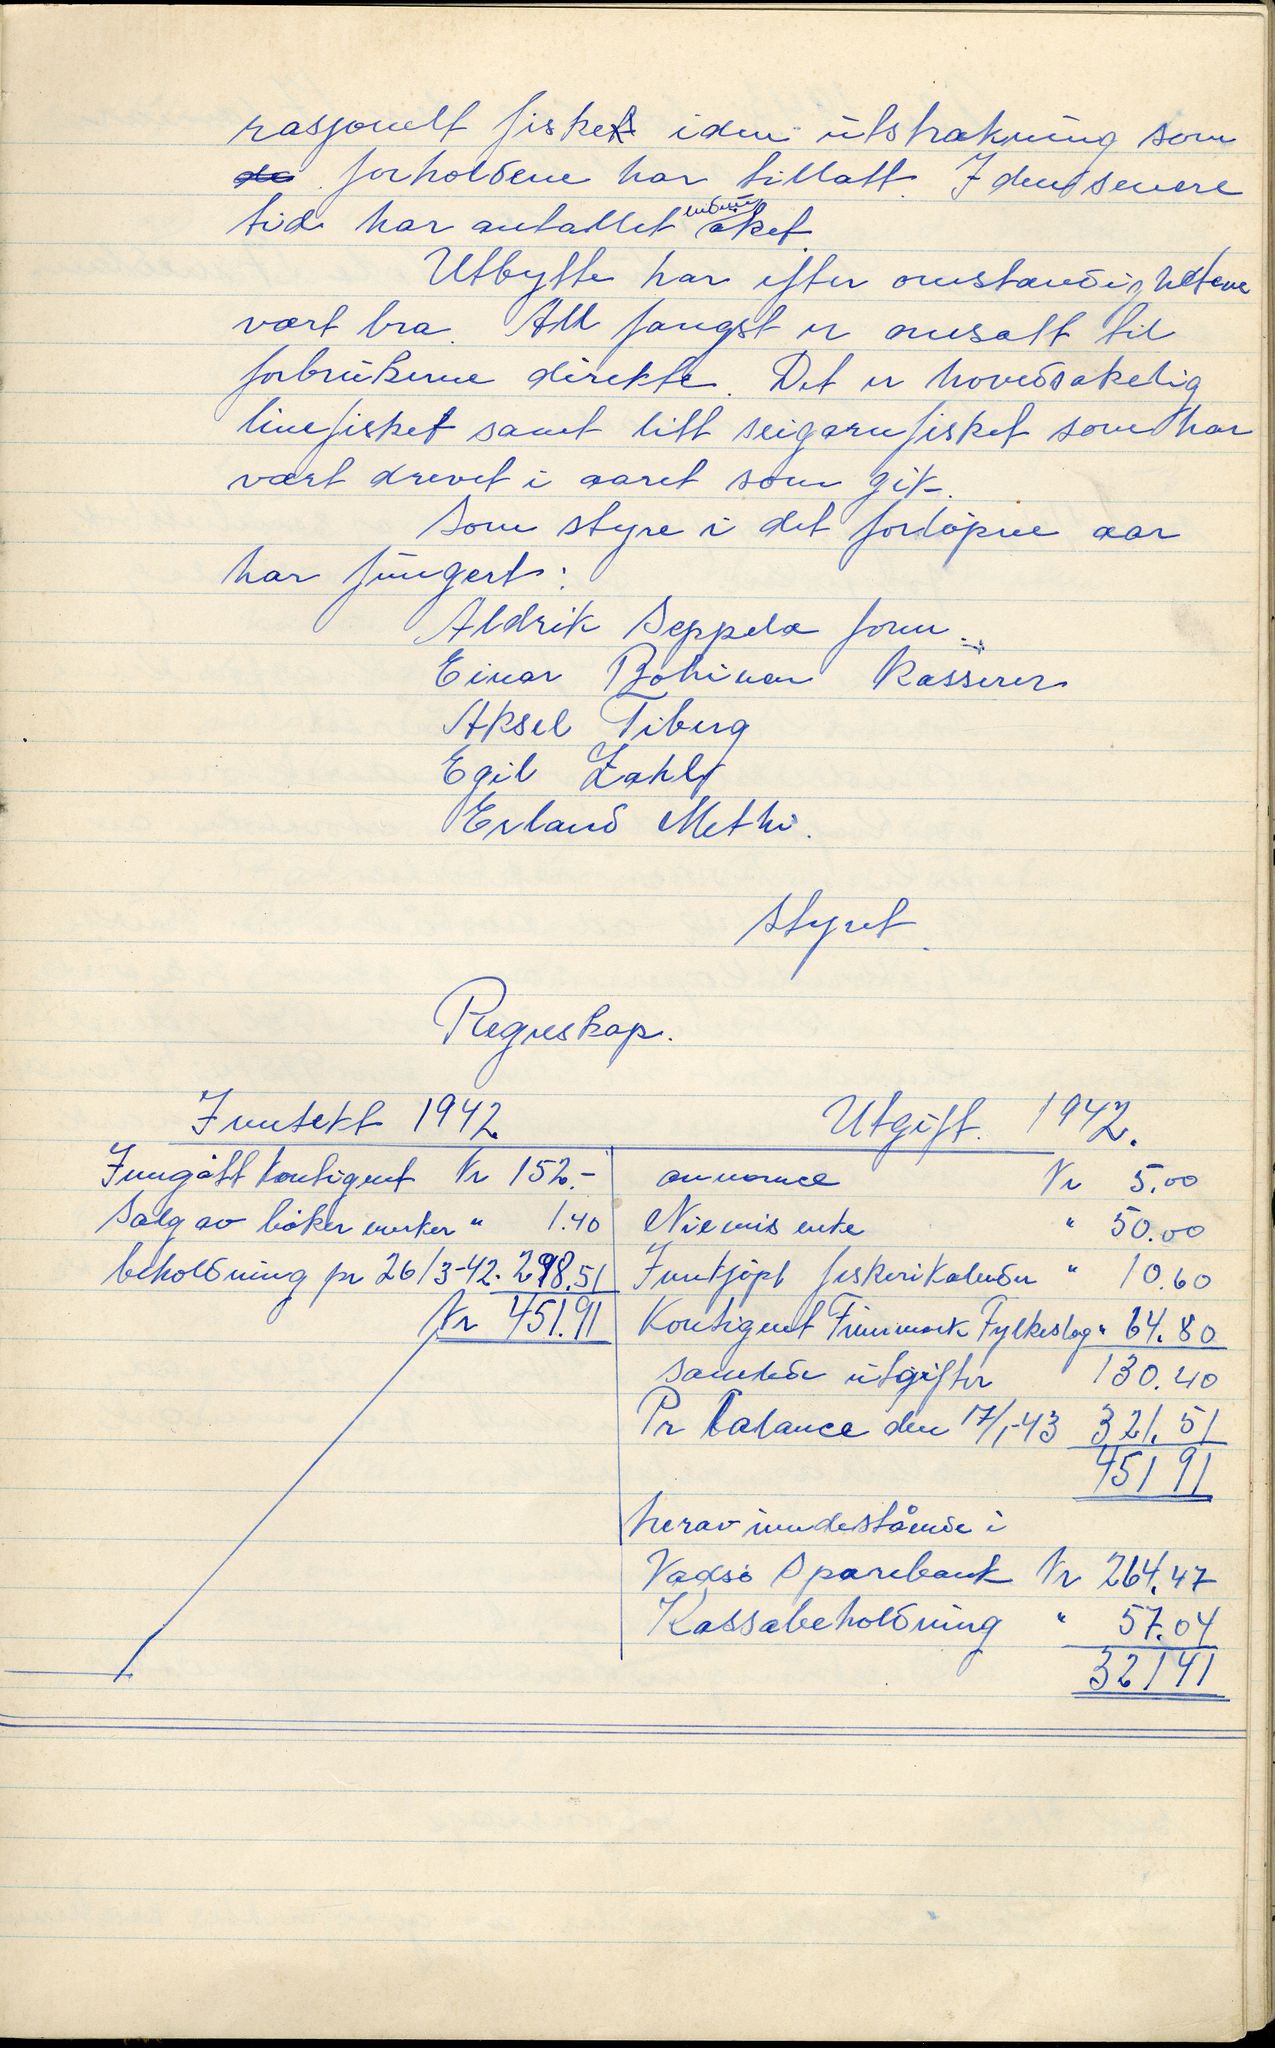 rasjonelt fisket iden utstrækning som
de forholdene har tillatt. I den senere
tid har antallet øket.
Utbytte har efter omstændighetene
vært bra. All fangst er omsatt til
forbrukerne direkte. Det er hovedsakelig
linefisket samt litt seigarnfisket som har
vært drevet i aaret som gik.
Som styre i det forløpne aar
har fungert:
Aldrik Seppela form.
Einar Bohinen Kasserer
Aksel Tiberg
Egil Zahl
Erland Methi.
Styret.
Regnskap.
Inntekt 1942.
Utgift. 1942.
Inngått kontigent Kr 152.-
annonce Kr 5.00
Salg av bøker merker " 1.40
Niemis enke " 50.00
beholdning pr 26/3-42. 298.51
Innkjøpt fiskerikalender " 10.60
Kr 451.91
Kontigent Finnmark Fylkeslag " 64.80
samlede utgifter 130.40
Pr balance den 17/1-43 321.51
451 91
herav innestående i
Vadsø Sparebank Kr 264.47
Kassabeholdning " 57.04
321 41